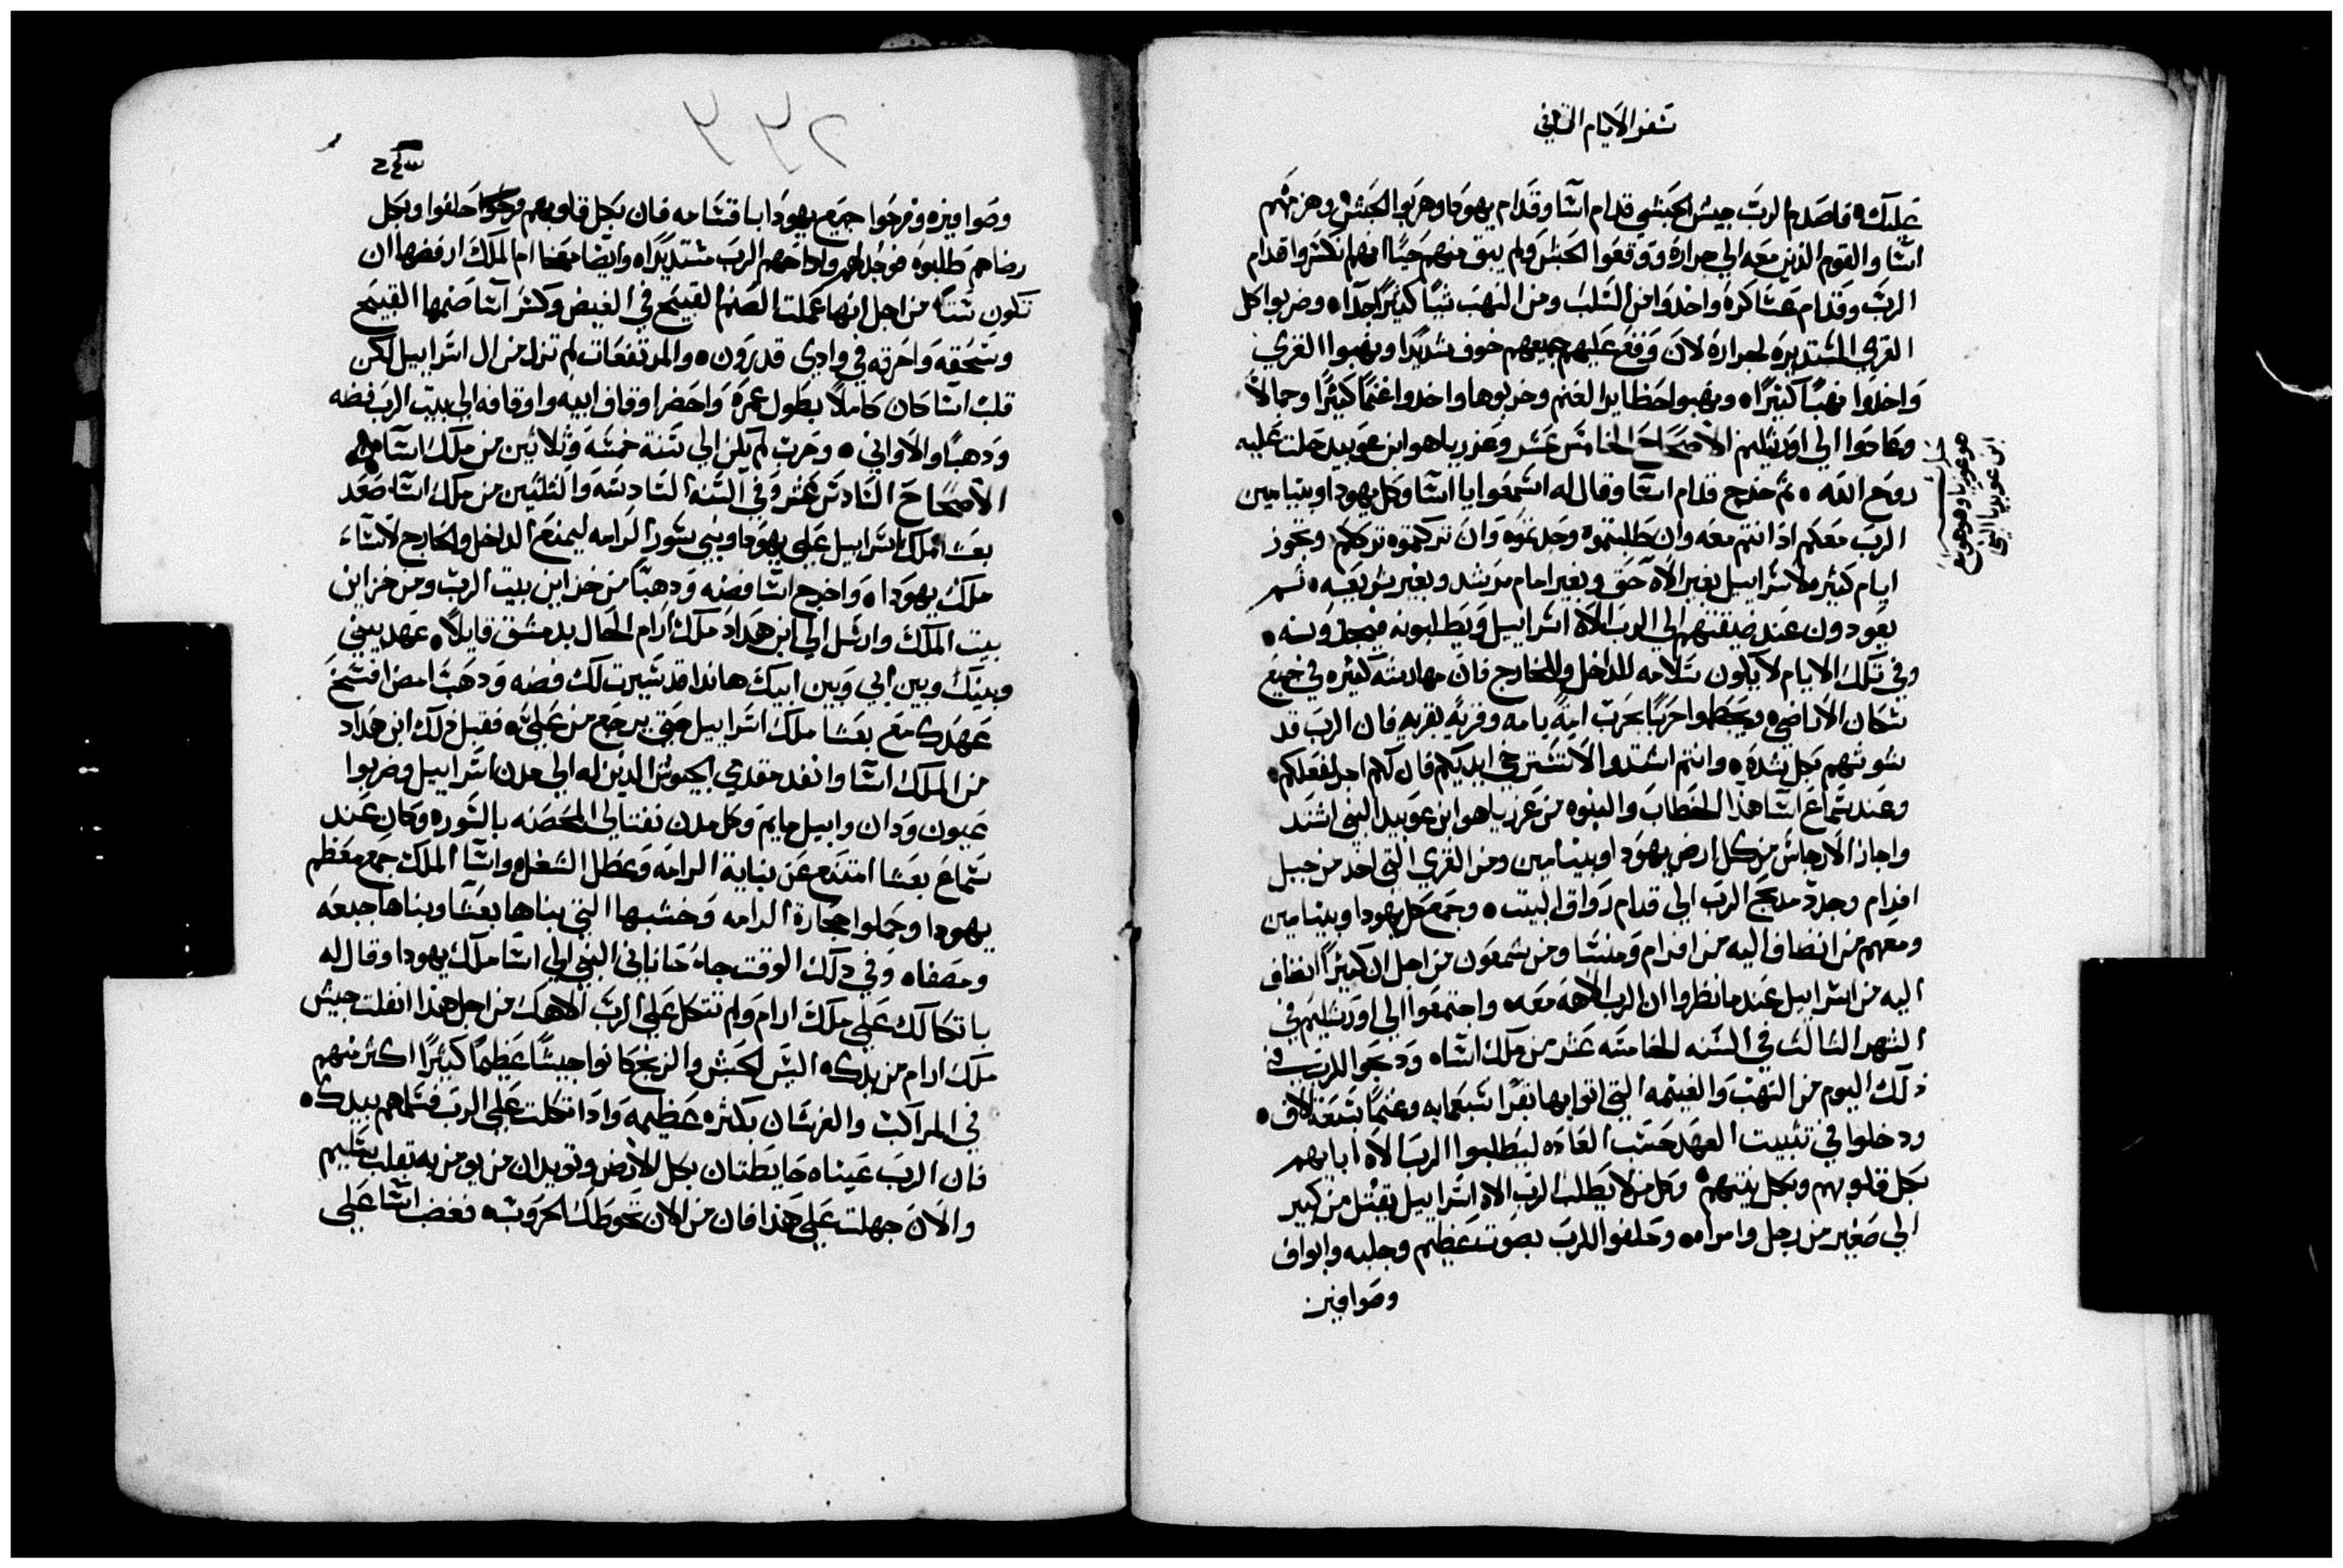 سفر الايام الثاني
عليك ه فاصدم الرب جيش الحبشي قدام اسا وقدام يهودا وهربوا الحبش ه وهزمهم
اسا والقوم الذين معه الي جرارة ووقعوا الحبش ولم يبق منهم حيًا انهم انكسروا قدام
الرب وقدام عساكره واخدوا من السلب ومن النهب شيًا كثيرًا جدًا ه وضربوا كل
القري المستديره لجراره لان وقع عليهم جميعهم خوف شديدًا ونهبوا القري
واخدوا نهبًا كثيرًا ه ونهبوا حظاير الغنم وخربوها واخدوا غنمًا كثيرًا وجمالاً
وعادوا الي اورشليم الاصحاح الخامس عشر وعزرياهو ابن عوبيد حلت عليه
روح الله ه ثم خرج قدام اسا وقال له اسمعوا يا اسا وكل يهودا وبنيامين
الرب معكم اذ انتم معه وان طلبتموه وجدتموه وان تركتموه تركم وتجوز
ايام كثير لاسراييل بغير الاه حق وبغير امام مرشد وبغير شريعه ه ثم
يعودون عند ضيقتهم الي الرب الاه اسراييل ويطلبونه فيجدونه ه
وفي تلك الايام لا يكون سلامه للداخل والخارج فان مهادسه كثيره في جميع
سكان الاراضي ه ويحطموا حربًا بحرب امة بامه وقرية بقريه فان الرب قد
شوشهم بكل شدة ه وانتم اشتدوا لا تسترخي ايديكم فان لكم اجر لفعلكم ه
وعند سماع اسا هذا الخطاب والنبوه من عزرياهو ابن عوبيد النبي اشتد
واجاز الارجاس من كل ارض يهودا وبنيامين ومن القري التي اخد من جبل
افرام وجدد مدبح الرب الي قدام رواق البيت ه وجمع كل يهودا وبنيامين
ومعهم من انضاف اليه من افرام ومنسا ومن شمعون من اجل ان كثيرًا انضاف
اليه من اسراييل عند ما نظروا ان الرب الاهه معه ه واجتمعوا الي اورشليم في
الشهر الثالث في السنه الخامسه عشر من ملك اسا ه ودبحوا للرب في
ذلك اليوم من النهب والغنيمه التي اتوا بها بقرًا سبعمايه وغنمًا سبعة الاف ه
ودخلوا في تثبيت العهد حسب العاده ليطلبوا الرب الاه ابايهم
بكل قلوبهم وبكل نيتهم ه وكل من لا يطلب الرب الاه اسراييل يقتل من كبير
الي صغير من رجل وامراه ه وحلفوا للرب بصوت عظيم وجلبه وابواق
وصوافير
هو عوزيا وهو يوع
ابن عوبيديا النبي
وصوافيره وفرحوا جميع يهودا باقسامه فان بكل قلوبهم حلفوا وبكل
رضاهم طلبوه فوجد لهم واراحهم الرب مستديرًا ه وايضا معخا ام الملك ارفضها ان
تكون ستًا من اجل انها عملت الصنم القبيح في الغيض وكسر اسا صنمها القبيح
وسحقه واحرقه في وادي قدرون ه والمرتفعات لم تزل من ال اسراييل لكن
قلب اسا كان كاملاً بطول عمره واحضر اوقاف ابيه واوقافه الي بيت الرب فضه
ودهبًا والاواني ه وحرب لم يكن الي سنة خمسه وثلاثين من ملك اسا
الاصحاح السادس عشر وفي السنه السادسه والثلثين من ملك اسا صعد
بعسا ملك اسراييل علي يهودا وبني سور الرامه ليمنع الداخل والخارج لاساء
ملك يهودا ه واخرج اسا فضه ودهبًا من خزاين بيت الرب ومن خزاين
بيت الملك وارسل الي ابن هداد ملك ارام الحال بدمشق قايلاً ه عهد بيني
وبينك وبين ابي وبين ابيك هاندا قد سيرت لك فضه ودهبًا امض افسخ
عهدك مع بعسا ملك اسراييل حتي يرجع من علي ه فقبل ذلك ابن هداد
من الملك اسا وانفد مقدمي الجيوش الدين له الي مدن اسراييل وضربوا
عيون ودان وابيل مايم وكل مدن نفتالي المحصنه بالسوره وكان عند
سماع بعسا امتنع عن بناية الرامه وعطل الشغل ه واسا الملك جمع معظم
يهودا وحملوا حجارة الرامه وخشبها التي بناها بعسا وبناها جبعه
ومصفاه وفي دلك الوقت جاء حناناني النبي الي اسا ملك يهودا وقال له
باتكالك علي ملك ارام ولم تتكل علي الرب الاهك من اجل هذا انفلت جيش
ملك ارام من يدك ه اليس الحبش والزنج كانوا جيشًا عظيمًا كثيرًا اكثر منهم
في المراكب والفرسان بكثره عظيمه وادا تكلت علي الرب فسلمهم بيدك ه
فان الرب عيناه حايطتان بكل الارض وتويدان من يومن به بقلب سليم
والان جهلت علي هذا فان من الان تحوطك الحروب ه فغضب اسا علي